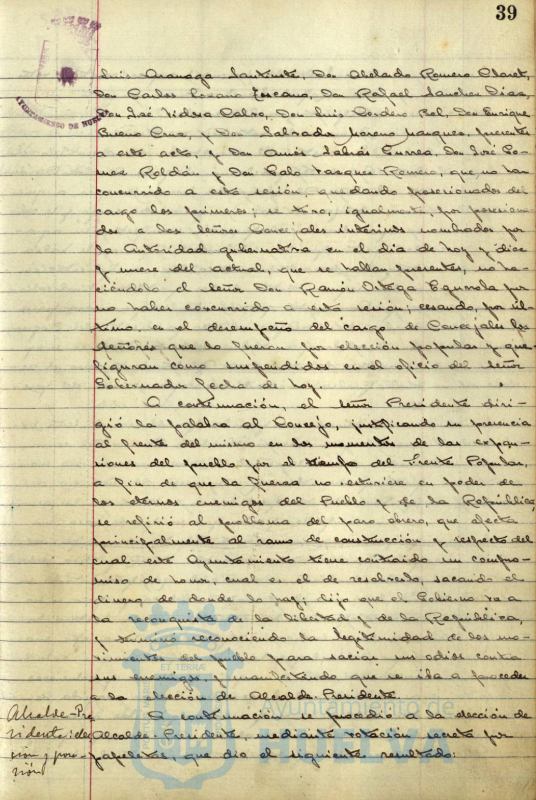 39
AYUNTAMIENTO DE HUELVA
Luis Aranaga Santiuste, Don Abelardo Romero Claret,
Don Carlos Lozano Toscano, Don Rafael Sánchez Díaz,
Don José Vidosa Calvo, Don Luis Cordero Bel, Don Enrique
Bueno Cruz, y Don Salvador Moreno Márquez, presentes
a este acto, y Don Amós Sabrás Gurrea, Don José Gó-
mez Roldán y Don Pablo Vázquez Romero, que no han
concurrido a esta sesión, quedando posesionados del
cargo los primeros; se tuvo, igualmente, por posesiona-
dos a los Señores Concejales interinos nombrados por
la Autoridad gubernativa en el día de hoy y diez
y nueve del actual, que se hallan presentes, no ha-
ciéndolo el Señor Don Ramón Ortega Egurrola por
no haber concurrido a esta sesión; cesando, por úl-
timo, en el desempeño del cargo de Concejales los
Señores que lo fueron por elección popular y que
figuran como suspendidos en el oficio del Señor
Gobernador fecha de hoy.
A continuación, el Señor Presidente diri-
gió la palabra al Concejo, justificando su presencia
al frente del mismo en los momentos de las expan-
siones del pueblo por el triunfo del Frente Popular,
a fin de que la fuerza no estuviese en poder de
los eternos enemigos del Pueblo y de la República;
se refirió al problema del paro obrero, que afecta
principalmente al ramo de construcción y respecto del
cual este Ayuntamiento tiene contraido un compro-
miso de honor, cual es el de resolverlo, sacando el
dinero de donde lo haya; dijo que el Gobierno va a
la reconquista de la libertad y de la República,
y terminó reconociendo la legitimidad de los mo-
vimientos del pueblo para saciar sus odios contra
sus enemigos, y manifestando que se iba a proceder
a la elección de Alcalde-Presidente.
Alcalde-Pre
sidente: elec
ción y pose-
sión
A continuación se procedió a la elección de
Alcalde-Presidente, mediante votación secreta por
papeletas, que dio el siguiente resultado:
ET TERRA
Ayuntamiento de
HUELVA